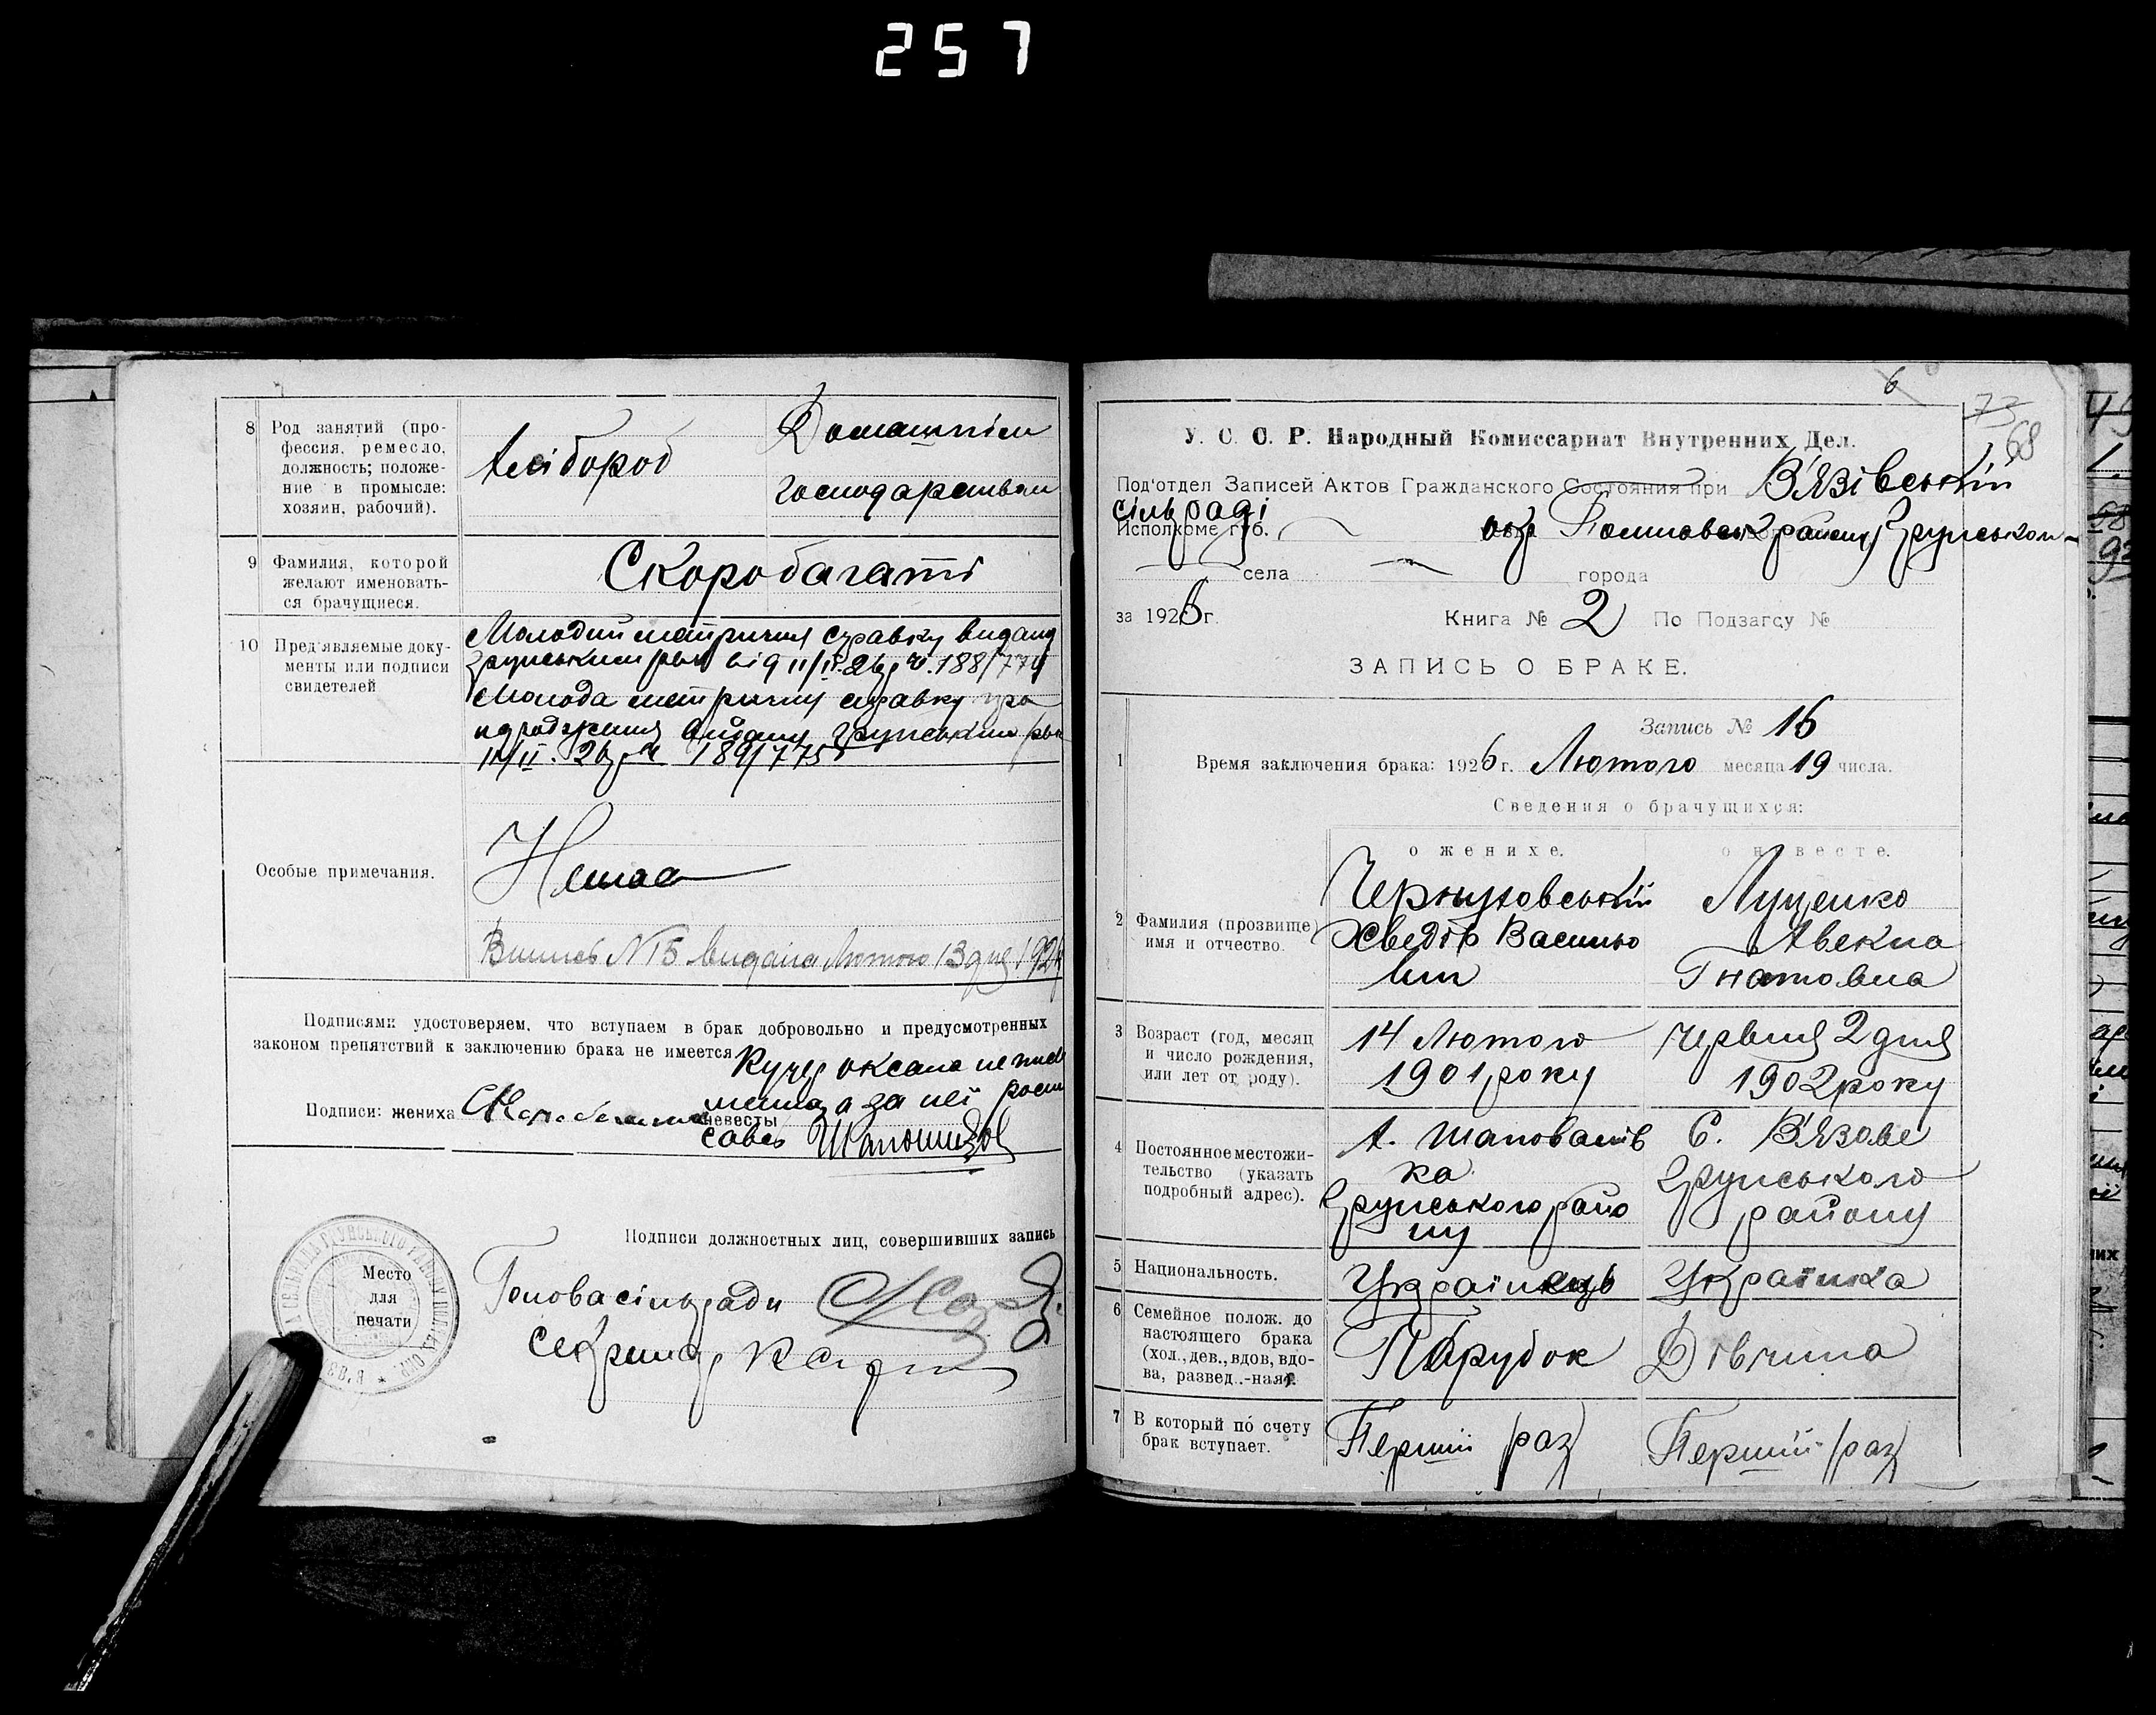 257
8 Род занятий (про-
фессия, ремесло,
должность; положе-
ние в промысле:
хозяин, рабочий).
Хлібороб
Домашнім
господарством
9 Фамилия, которой
желают именовать-
ся брачущиеся.
Скоробагаті
10 Пред'являемые доку-
менты или подписи
свидетелей
Молодий метричну справку видану
Грунським від 11/II 26 р. ч. 188/774
Молода метричну справку про
народження видану Грунським
11/II. 26 р ч 189/775
Особые примечания.
Немає
Випись N 15 видана Лютого 13 дня 192
Подписями удостоверяем, что вступаем в брак добровольно и предусмотренных
законом препятствий к заключению брака не имеется
Кучер Оксана не пись
менна, а за неї роспи
Подписи: жениха невесты
савсь
Подписи должностных лиц, совершивших запись
Место
для
печати
Голова сільради
Секретар
6
73
68
У. С. С. Р. Народный Комиссариат Внутренних Дел.
Под'отдел Записей Актов Гражданского Состояния при В'язівській
сільраді
Исполкоме губ. окр Полтавськ району Грунському
села города
за 1926 г. Книга № 2 По Подзагсу №
ЗАПИСЬ О БРАКЕ.
Запись № 16
1 Время заключения брака: 1926 г. Лютого месяца 19 числа.
Сведения о брачущихся:
о женихе. о невесте.
2 Фамилия (прозвище)
имя и отчество.
Хведір Васильо
вич
Луценко
Векла
Гнатовна
3 Возраст (год, месяц
и число рождения,
или лет от роду).
14 Лютого
1901 року
Червня 2 дня
1902 року
4 Постоянное местожи-
тельство (указать
подробный адрес).
х. Шаповалів
ка
Грунського райо
ну
С. В'язове
Грунського
району
5 Национальность.
Українець
Українка
6 Семейное полож. до
настоящего брака
(хол., дев., вдов, вдо-
ва, развед.-ная).
Парубок
Дівчина
7 В который по счету
брак вступает.
Перший раз
Перший раз